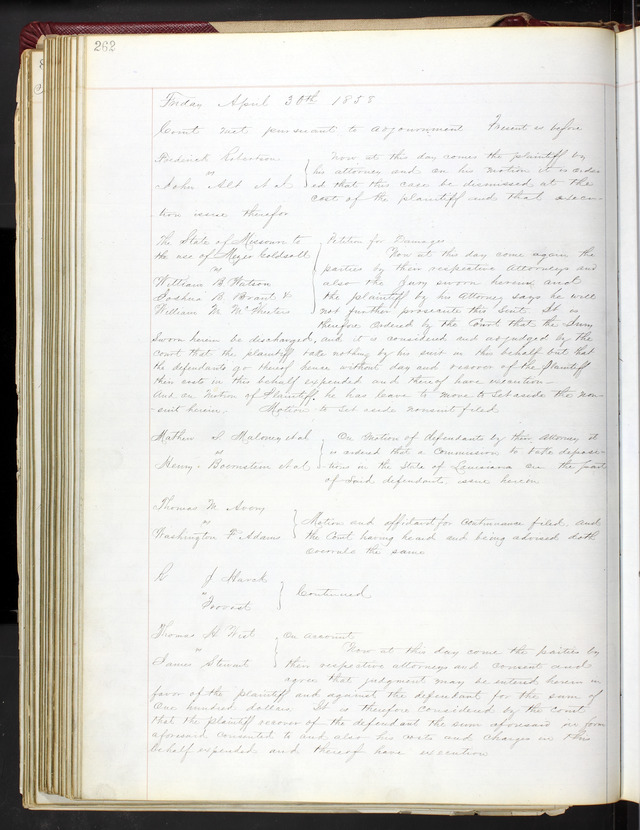 262
Friday April 30th 1858
Court met pursuant to adjournment Present as before
Frederick Robertson Now at this day comes the plaintiff by
vs his attorney and on his motion it is order
John Ald et al ed that this case be dismissed at the
cost of the plaintiff and that execu-
tion issue therefor
The State of Missouri to Petition for Damages
the use of Meyer Goldsoll Now at this day come again the
vs parties by their respective Attorneys and
William B Watson also the Jury sworn herein and
Joshua B Brant & the plaintiff by his Attorney says he will
William M McPheeters not further prosecute this Suit. It is
therefore ordered by the Court that the Jury
Sworn herein be discharged, and it is considered and adjudged by the
Court that the plaintiff take nothing by his suit in this behalf but that
the defendants go thereof hence without day and recover of the plaintiff
their costs in this behalf expended and thereof have execution—
And on Motion of Plaintiff he has leave to move to Set aside the non-
suit herein. Motion to Set aside nonsuit filed
Mathew S Maloney et al On Motion of defendants by their attorney it
vs is ordered that a Commission to take deposi-
Henry Boernstein et al tions in the State of Louisiana on the part
of Said defendants issue herein
Thomas M Avery
vs Motion and affidavit for Continuance filed and
Washington F Adams the Court having heard and being advised doth
overrule the same
R J Hauck
vs Continued
Provost
Thomas H West On account
vs Now at this day come the parties by
James Stewart their respective attorneys and consent and
agree that judgment may be entered herein in
favor of the plaintiff and against the defendant for the sum of
One hundred dollars. It is therefore Considered by the Court
that the plaintiff recover of the defendant the sum aforesaid in form
aforesaid consented to and also his costs and charges in this
behalf expended and thereof have execution